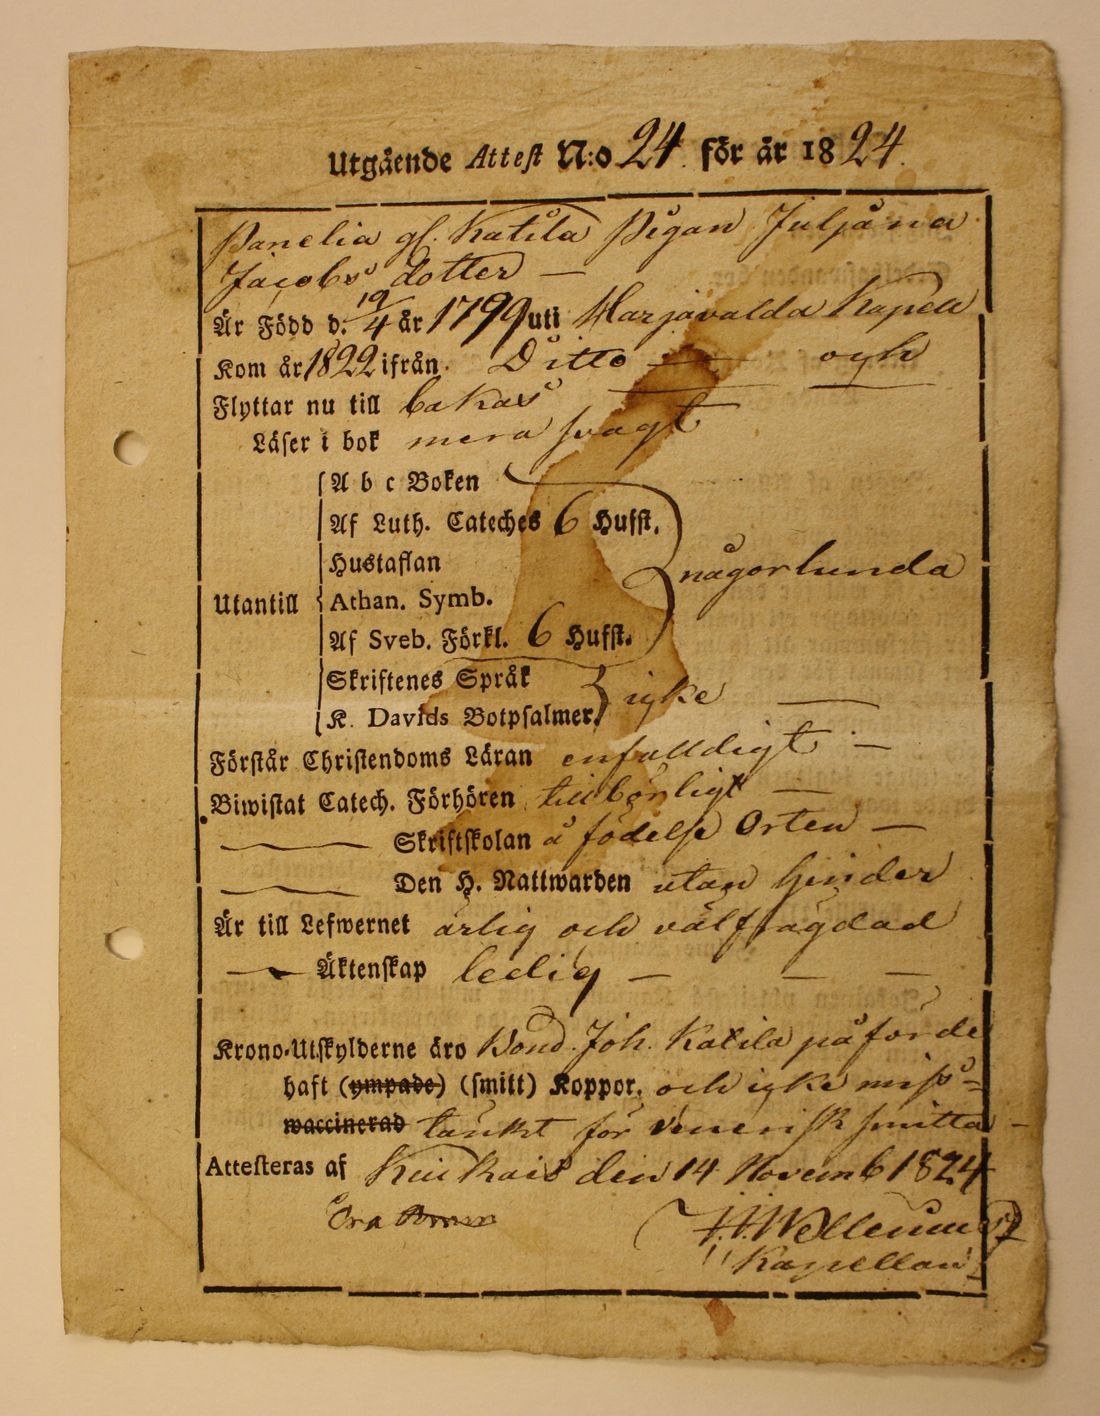 Utgående Attest N:o 24. för år 1824.
Panelia gl. Katila Pigan Juljana
Jacobs dotter —
Är Född d. 19/4 år 1799 uti Harjavalda Kapell
Kom år 1822 ifrån Ditto — och
Flyttar nu till
Läser i bok mera svagt
A b c Boken
Af Luth. Cateches 6 Hufst.
Hustaflan
någorlunda
Utantill
Athan. Symb.
Af Sveb. Förkl. 6 Hufst.
Skriftenes Språk
K. Davids Botpsalmer. icke —
Förstår Christendoms Läran enfalldigt —
Biwistat Catech. Förhören tillbörligt —
Skriftskolan å födelse Orten —
Den H. Nattwarden utan hinder
Är till Lefwernet ärlig och välfrägdad
Äktenskap ledig — — —
Krono-Utskylderne äro Bond. Joh. Katila påförde
haft (ympade) (smitt) Koppor. och icke miss=
waccinerad tänkt för Venerisk smitta —
Attesteras af Kiukais den 14 Novemb 1824
Kapellan